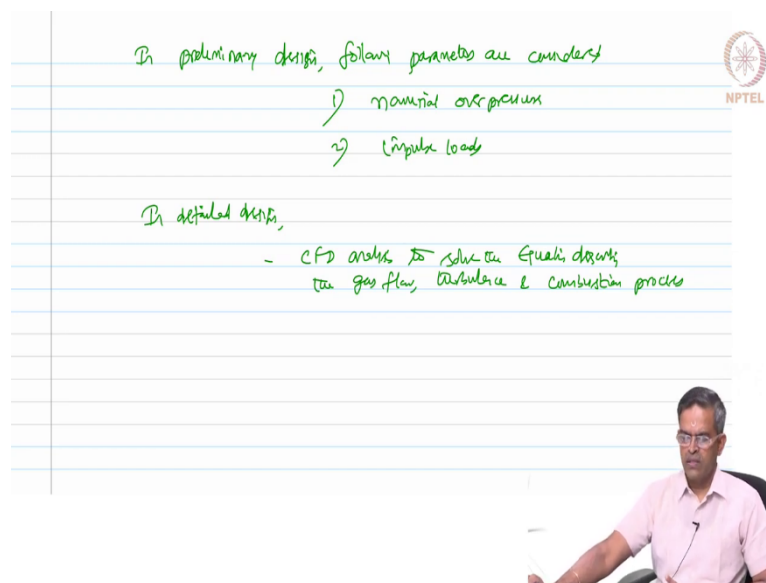 In preliminary design, follows parameters are considered
NPTEL
1) nominal overpressure
2) impulse loads
In detailed design,
- CFD analysis to solve the Equations describing
the gas flow, turbulence & combustion process